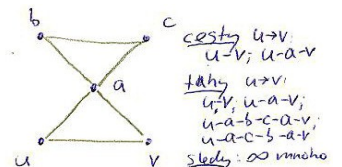 b
c
a
u
v
cesty u→v:
u-v; u-a-v
tahy u→v:
u-v; u-a-v;
u-a-b-c-a-v;
u-a-c-b-a-v
sledy: ∞ mnoho